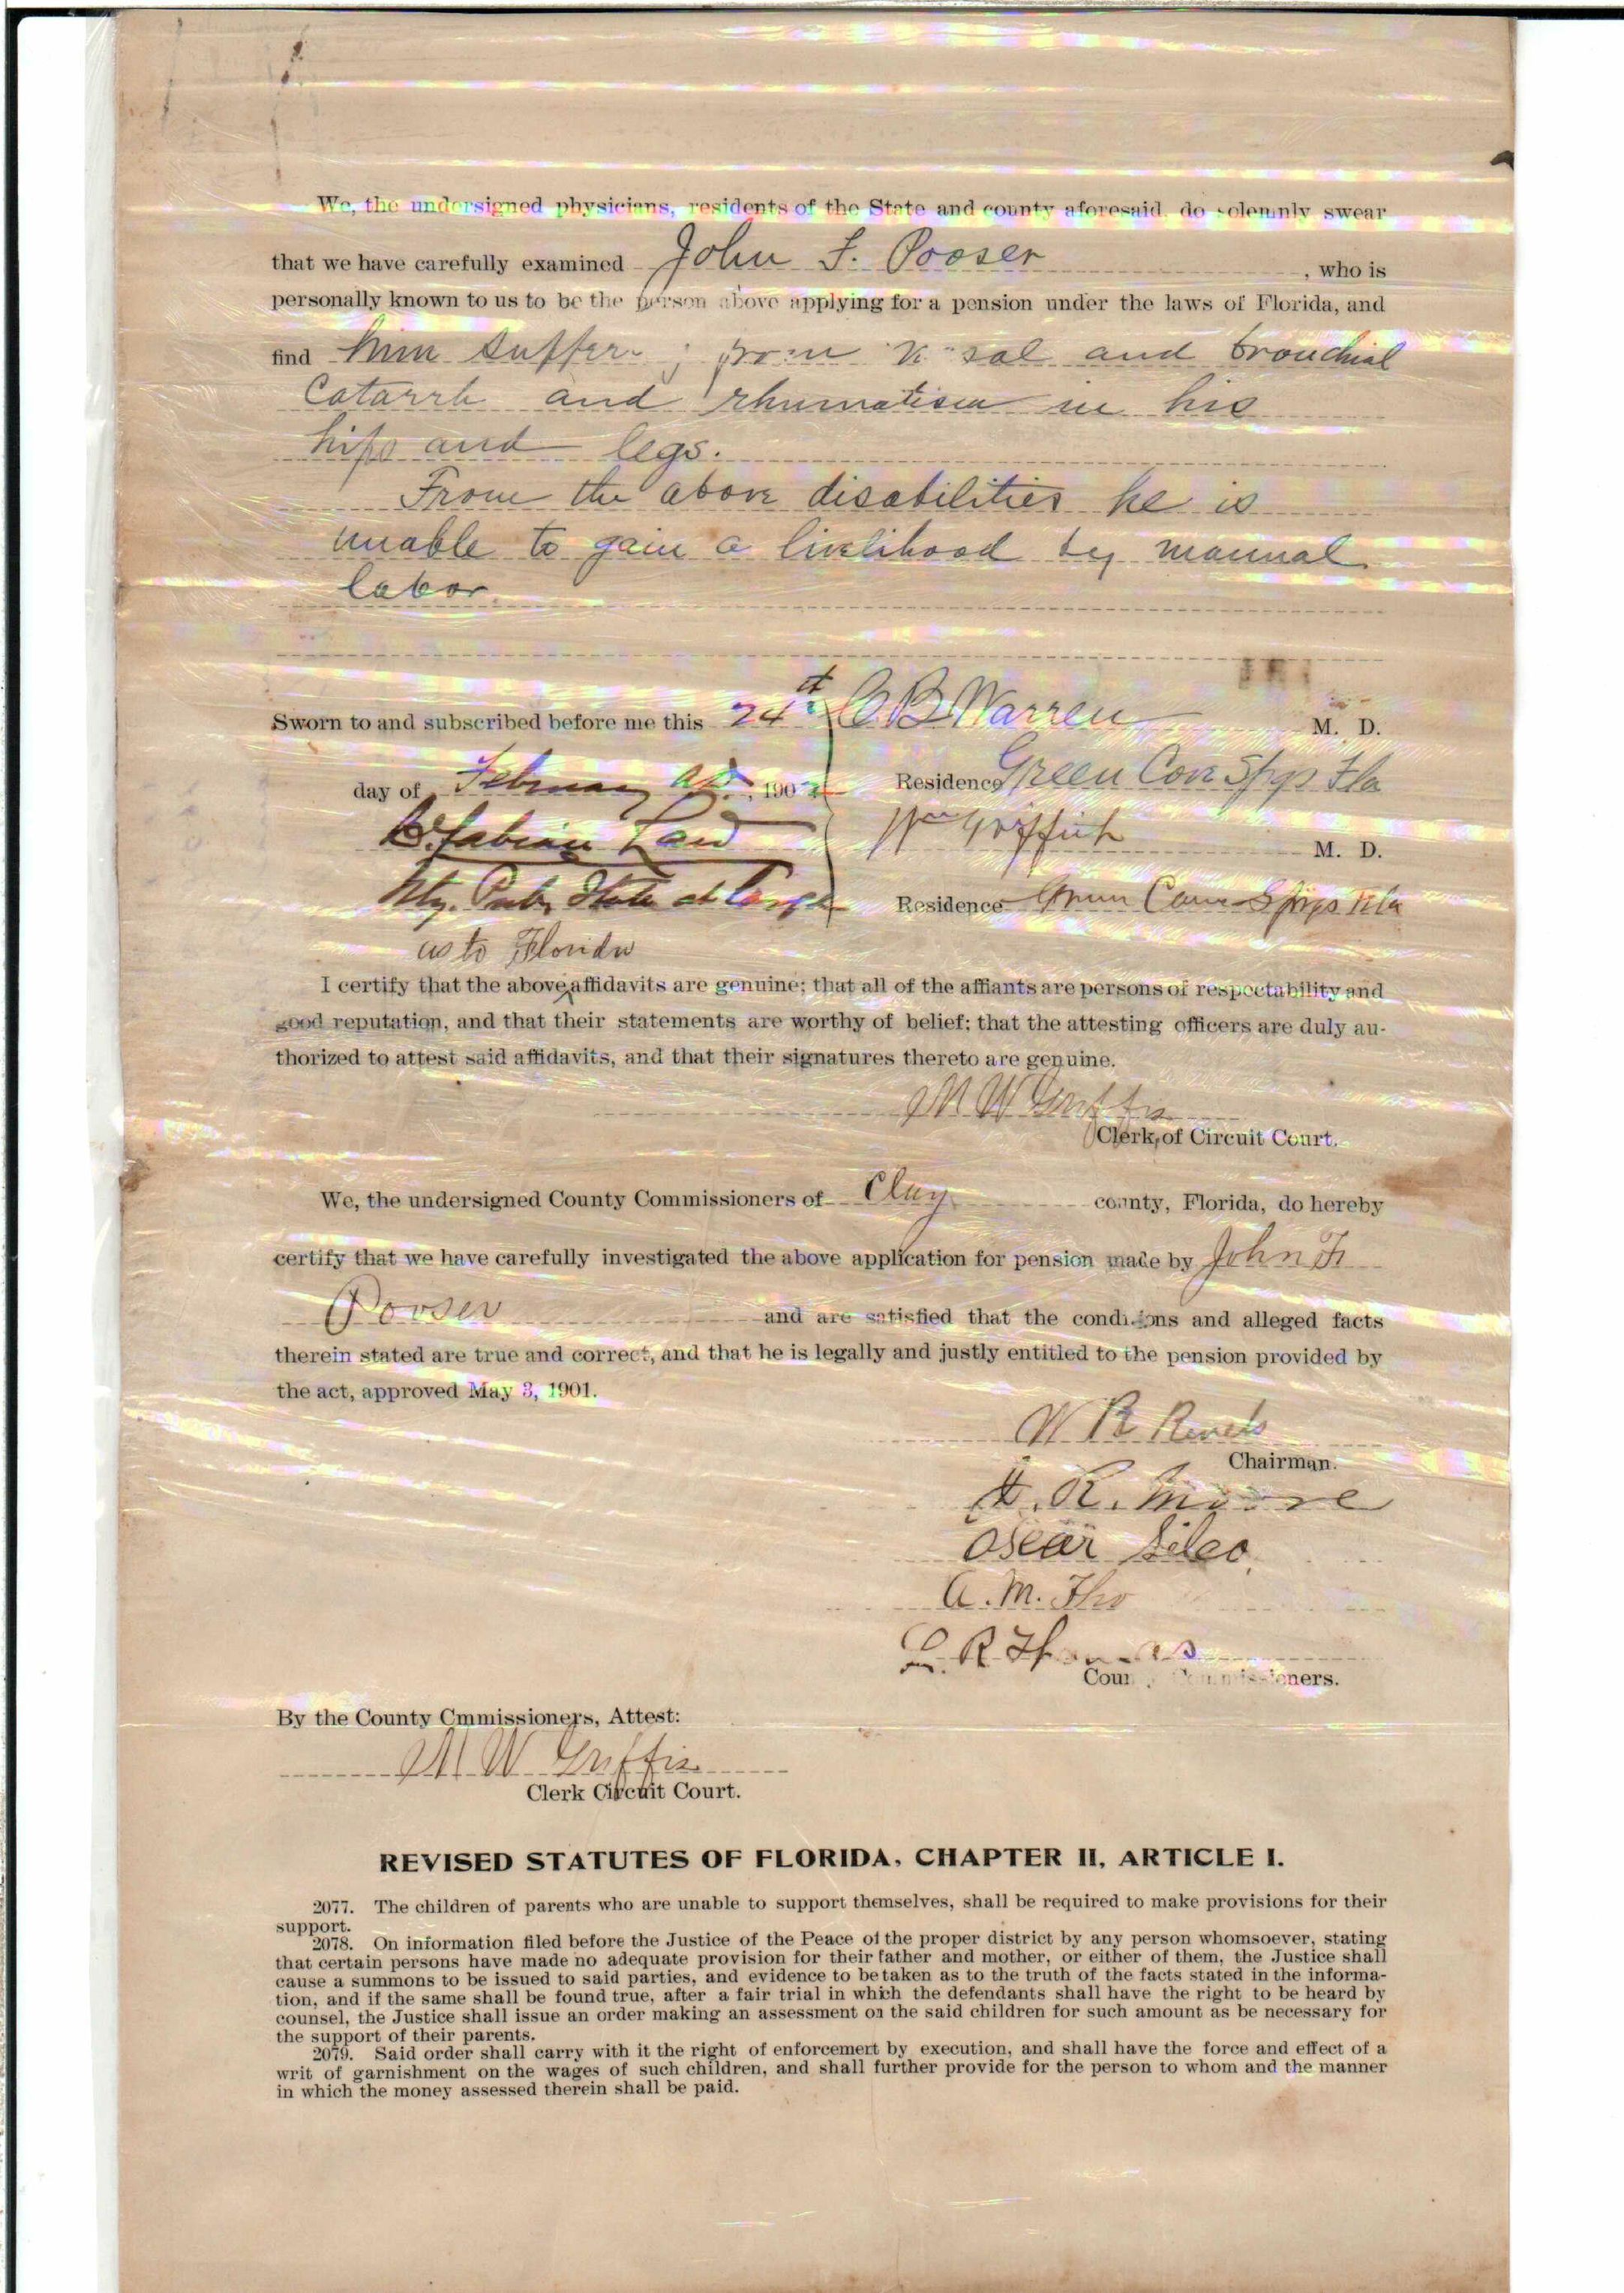 We, the undersigned physicians, residents of the State and county aforesaid, do solemnly swear
that we have carefully examined John F. Pooser, who is
personally known to us to be the person above applying for a pension under the laws of Florida, and
find him suffer from and bronchial
Catarrh and rhumatism in his
hips and legs.
From the above disabilities he is
unable to gain a livelihood by manual
labor.
Sworn to and subscribed before me this 24th C. B. Warren M. D.
day of February AD, 190 Residence Green Cove Spgs Fla
Wm Griffith M. D.
Nty. Pub. State at Large Residence Green Cove Spgs Fla
as to Florida
I certify that the above affidavits are genuine; that all of the affiants are persons of respectability and
good reputation, and that their statements are worthy of belief; that the attesting officers are duly au-
thorized to attest said affidavits, and that their signatures thereto are genuine.
M W Griffis
Clerk of Circuit Court.
We, the undersigned County Commissioners of Clay county, Florida, do hereby
certify that we have carefully investigated the above application for pension made by John F
Pooser and are satisfied that the conditions and alleged facts
therein stated are true and correct, and that he is legally and justly entitled to the pension provided by
the act, approved May 3, 1901.
W R Revels
Chairman.
R. Moore
Oscar Silco
A. M.
R Thomas
County Commissioners.
By the County Cmmissioners, Attest:
M W Griffis
Clerk Circuit Court.
REVISED STATUTES OF FLORIDA, CHAPTER II, ARTICLE I.
2077. The children of parents who are unable to support themselves, shall be required to make provisions for their
support.
2078. On information filed before the Justice of the Peace of the proper district by any person whomsoever, stating
that certain persons have made no adequate provision for their father and mother, or either of them, the Justice shall
cause a summons to be issued to said parties, and evidence to be taken as to the truth of the facts stated in the informa-
tion, and if the same shall be found true, after a fair trial in which the defendants shall have the right to be heard by
counsel, the Justice shall issue an order making an assessment on the said children for such amount as be necessary for
the support of their parents.
2079. Said order shall carry with it the right of enforcement by execution, and shall have the force and effect of a
writ of garnishment on the wages of such children, and shall further provide for the person to whom and the manner
in which the money assessed therein shall be paid.